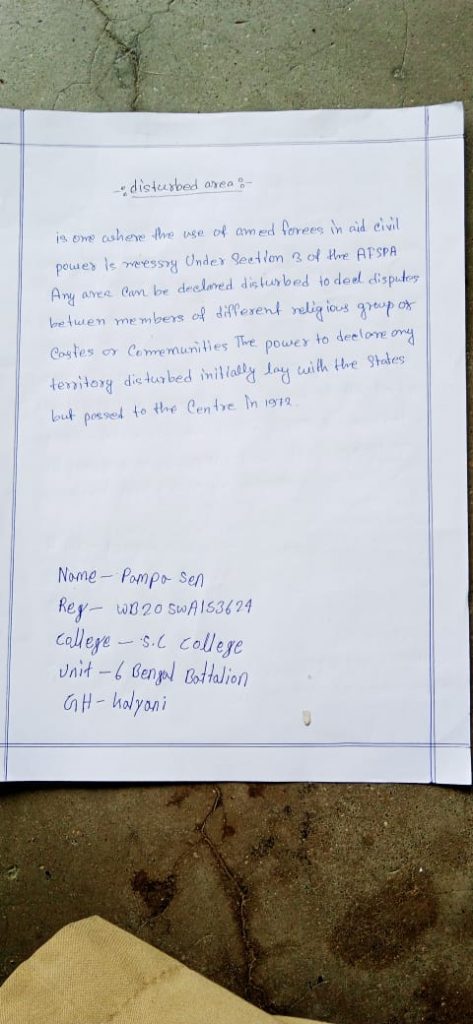 -: disturbed area :-
is one where the use of amed forees in aid civil
power is neressry Under Section 3 of the AFSPA
Any area Can be declared disturbed to deel disputes
betwen members of different religious group or
Castes or Comemunities The power to declare any
territory disturbed initially lay with the States
but passed to the Centre In 1972
Name - Pampa Sen
Reg - WB20SWA153624
College - S.C College
Unit - 6 Bengal Battalion
GH - kalyani